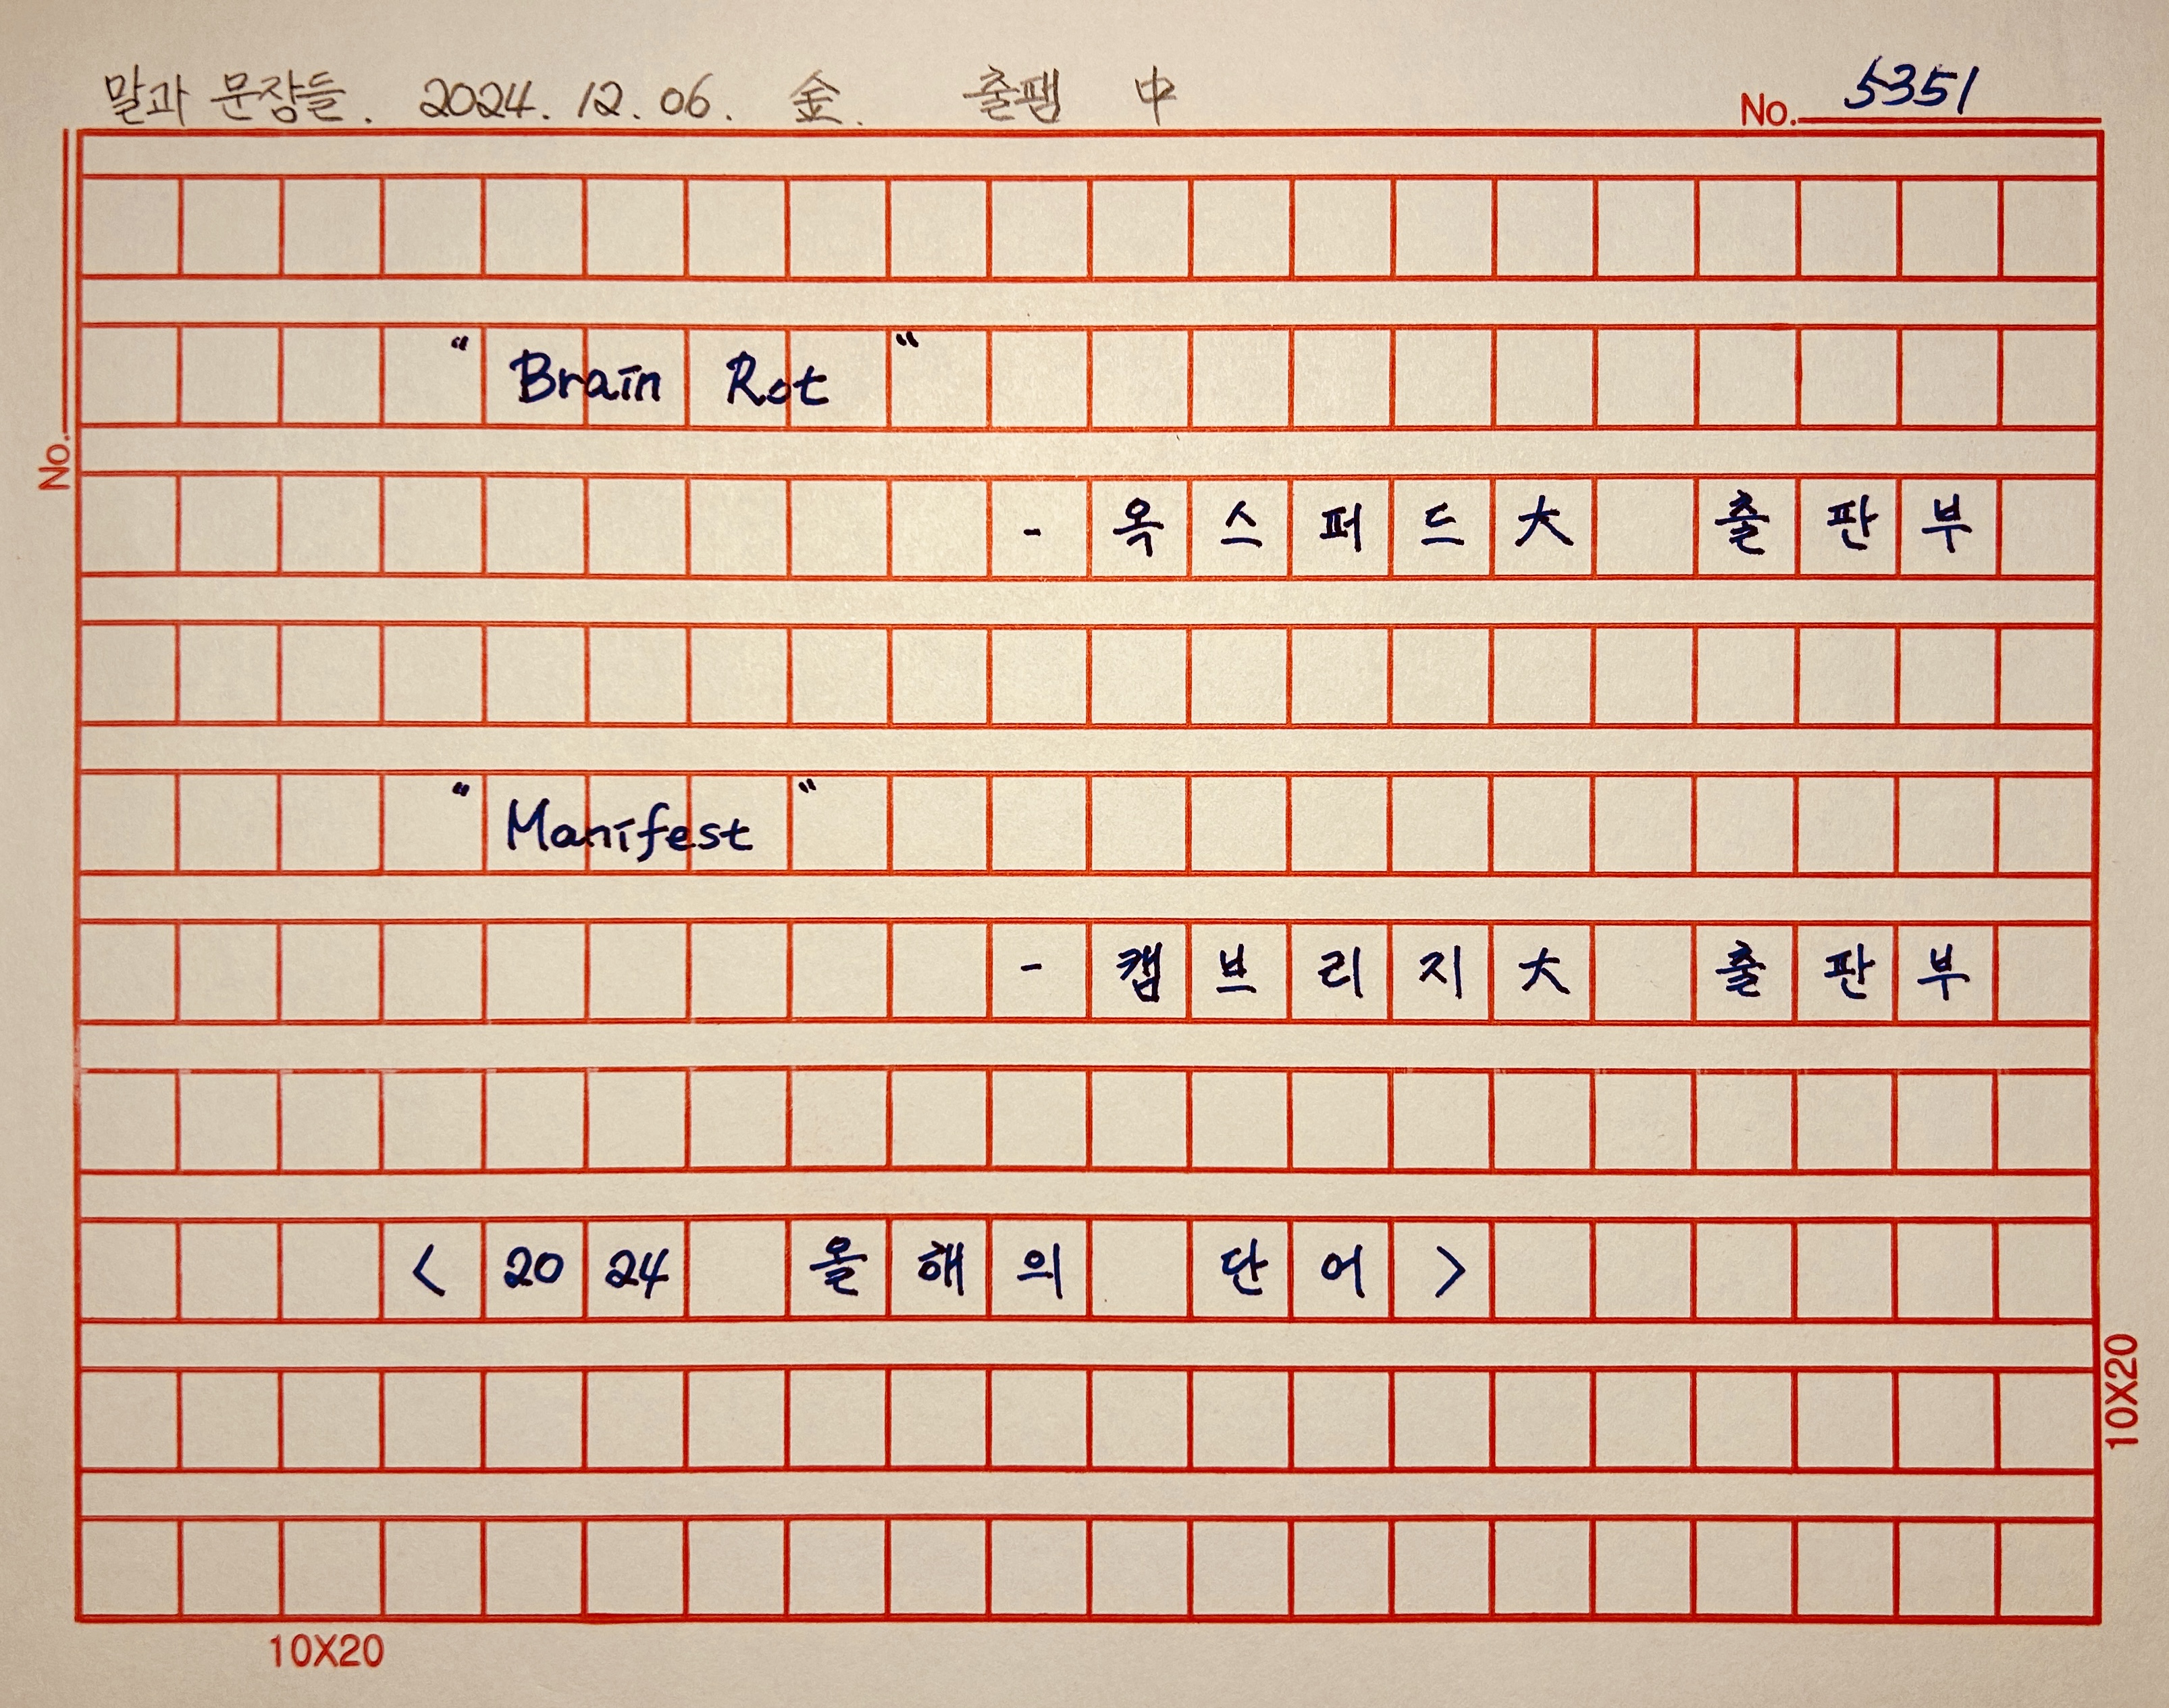 말과 문장들. 2024. 12. 06. 金. 출팸 中
No. 5351
"Brain Rot"
No.
- 옥스퍼드大 출판부
"Manifest"
- 캠브리지大 출판부
<2024 올해의 단어>
10X20
10X20